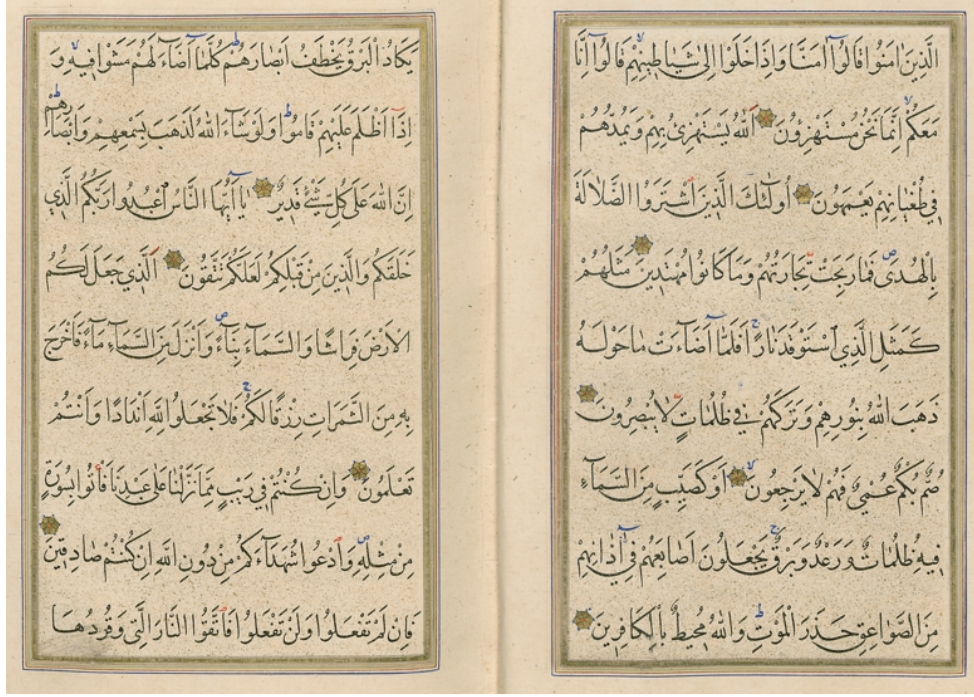 الَّذِينَ اٰمَنُوا قَالُوا اٰمَنَّا وَاِذَا خَلَوْا اِلٰى شَيَاطِينِهِمْ قَالُوا اِنَّا
مَعَكُمْ اِنَّمَا نَحْنُ مُسْتَهْزِؤُنَ اَللّٰهُ يَسْتَهْزِئُ بِهِمْ وَيَمُدُّهُمْ
فِي طُغْيَانِهِمْ يَعْمَهُونَ اُولٰئِكَ الَّذِينَ اشْتَرَوُا الضَّلَالَةَ
بِالْهُدٰى فَمَا رَبِحَتْ تِجَارَتُهُمْ وَمَا كَانُوا مُهْتَدِينَ مَثَلُهُمْ
كَمَثَلِ الَّذِي اسْتَوْقَدَ نَارًا فَلَمَّا اَضَاءَتْ مَا حَوْلَهُ
ذَهَبَ اللّٰهُ بِنُورِهِمْ وَتَرَكَهُمْ فِي ظُلُمَاتٍ لَا يُبْصِرُونَ
صُمٌّ بُكْمٌ عُمْيٌ فَهُمْ لَا يَرْجِعُونَ اَوْ كَصَيِّبٍ مِنَ السَّمَاءِ
فِيهِ ظُلُمَاتٌ وَرَعْدٌ وَبَرْقٌ يَجْعَلُونَ اَصَابِعَهُمْ فِي اٰذَانِهِمْ
مِنَ الصَّوَاعِقِ حَذَرَ الْمَوْتِ وَاللّٰهُ مُحِيطٌ بِالْكَافِرِينَ
يَكَادُ الْبَرْقُ يَخْطَفُ اَبْصَارَهُمْ كُلَّمَا اَضَاءَ لَهُمْ مَشَوْا فِيهِ وَ
اِذَا اَظْلَمَ عَلَيْهِمْ قَامُوا وَلَوْ شَاءَ اللّٰهُ لَذَهَبَ بِسَمْعِهِمْ وَاَبْصَارِهِمْ
اِنَّ اللّٰهَ عَلٰى كُلِّ شَيْءٍ قَدِيرٌ يَا اَيُّهَا النَّاسُ اعْبُدُوا رَبَّكُمُ الَّذِي
خَلَقَكُمْ وَالَّذِينَ مِنْ قَبْلِكُمْ لَعَلَّكُمْ تَتَّقُونَ اَلَّذِي جَعَلَ لَكُمُ
الْاَرْضَ فِرَاشًا وَالسَّمَاءَ بِنَاءً وَاَنْزَلَ مِنَ السَّمَاءِ مَاءً فَاَخْرَجَ
بِهِ مِنَ الثَّمَرَاتِ رِزْقًا لَكُمْ فَلَا تَجْعَلُوا لِلّٰهِ اَنْدَادًا وَاَنْتُمْ
تَعْلَمُونَ وَاِنْ كُنْتُمْ فِي رَيْبٍ مِمَّا نَزَّلْنَا عَلٰى عَبْدِنَا فَأْتُوا بِسُورَةٍ
مِنْ مِثْلِهِ وَادْعُوا شُهَدَاءَكُمْ مِنْ دُونِ اللّٰهِ اِنْ كُنْتُمْ صَادِقِينَ
فَاِنْ لَمْ تَفْعَلُوا وَلَنْ تَفْعَلُوا فَاتَّقُوا النَّارَ الَّتِي وَقُودُهَا